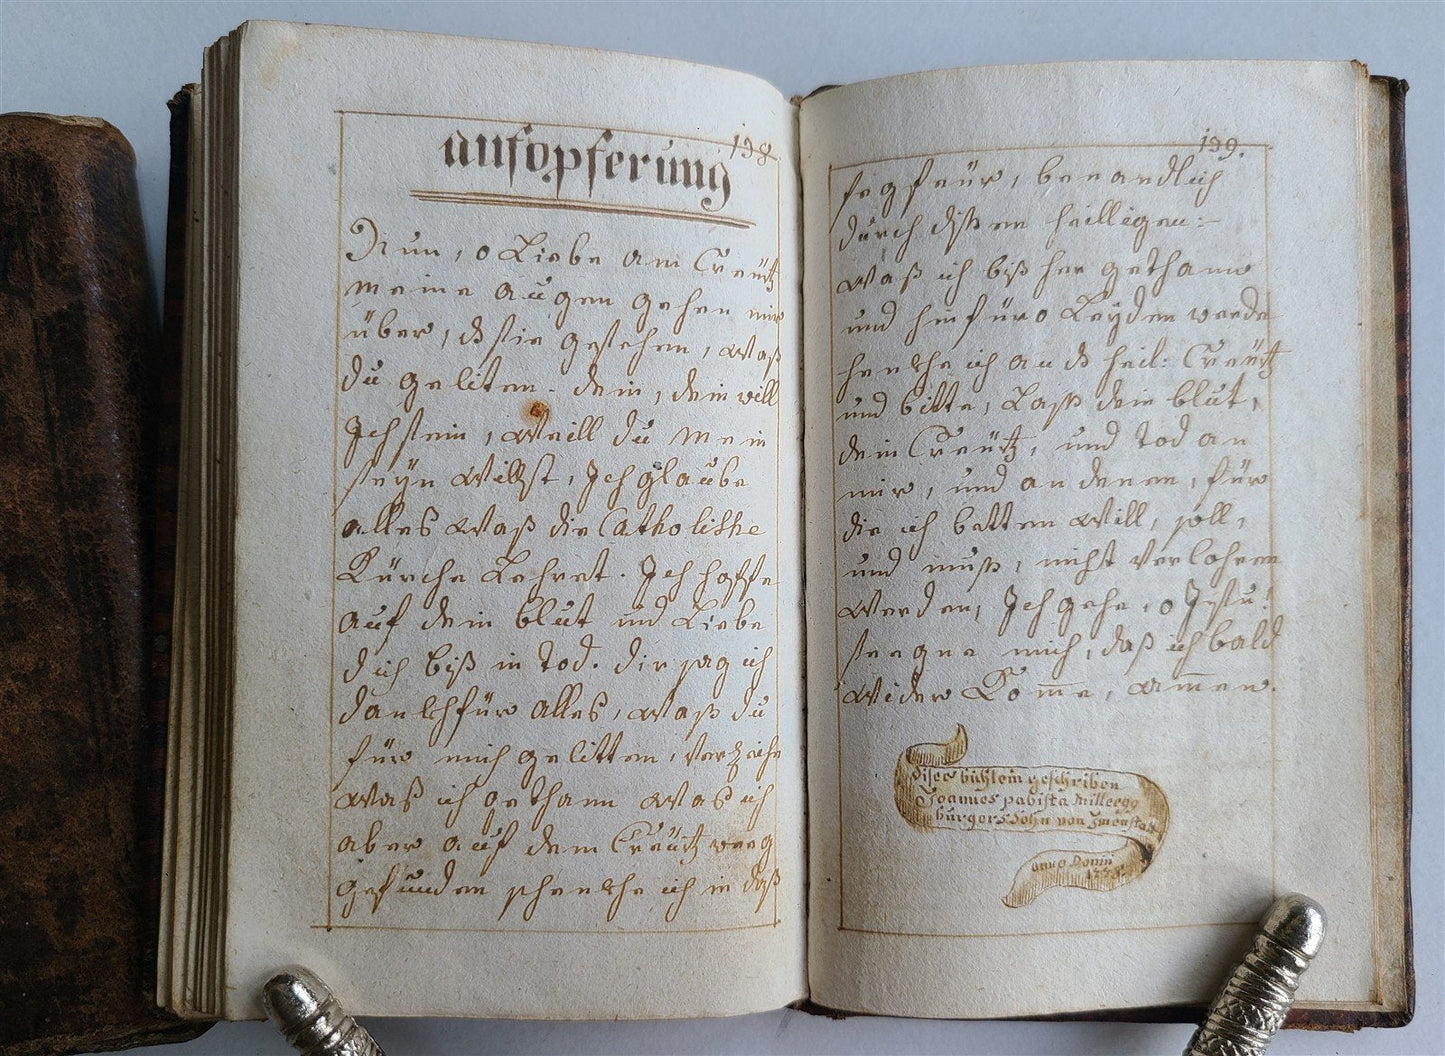 aufopferung
138
Nun, o Liebe am Creütz
meine augen gehen mir
über, die gestehen, waß
du geliten. dein, dein will
Ich sein, Weill du mein
seyn willst, Ich glaube
alles waß die Catholishe
Kürche Lehret. Ich hoffe
auf dein blut und Liebe
dich biß in Tod. dir sag ich
danckh für alles, waß du
für mich gelitten, Verzeihe
waß ich gethann was ich
aber auf dem Creützweeg
gefunden schenckhe ich in daß
139.
fegfeür, benandlich
durch dißen heilligen:
waß ich biß her gethann
und hinfüro Leyden werde
henckhe ich an dß heil: Creütz
und bitte, Laß dein blut,
dein Creütz, und Tod an
mir, und an denen, für
die ich betten will, soll,
und muß, nicht Verlohren
werden, Ich gehe, o Jesu!
seegne mich, daß ich bald
wider Kom̄e, am̄en.
Dises büchlein geschriben
Joannes pabista Milleregg
burgers Sohn von
anno Domini